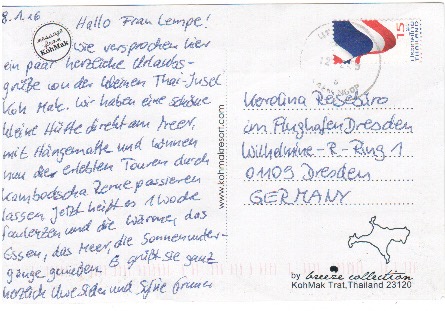 8.1.16
Hallo Frau Lempe!
wie versprochen hier
ein paar herzliche Urlaubs-
grüße von der kleinen Thai-Insel
Koh Mak. Wir haben eine schöne
kleine Hütte direkt am Meer,
mit Hängematte und können
nun der erlebten Touren durch
Kambodscha Revue passieren
lassen. Jetzt heißt es 1 Woche
faulenzen und die Wärme, das
Essen, das Meer, die Sonnenunter-
gänge genießen. Es grüßt sie ganz
herzlich Uwe und
message from KohMak
www.kohmakresort.com
15
THAILAND
Karolina Reisebüro
im Flughafen Dresden
Wilhelmine-R-Ring 1
01109 Dresden
GERMANY
by breeze collection
KohMak Trat,Thailand 23120